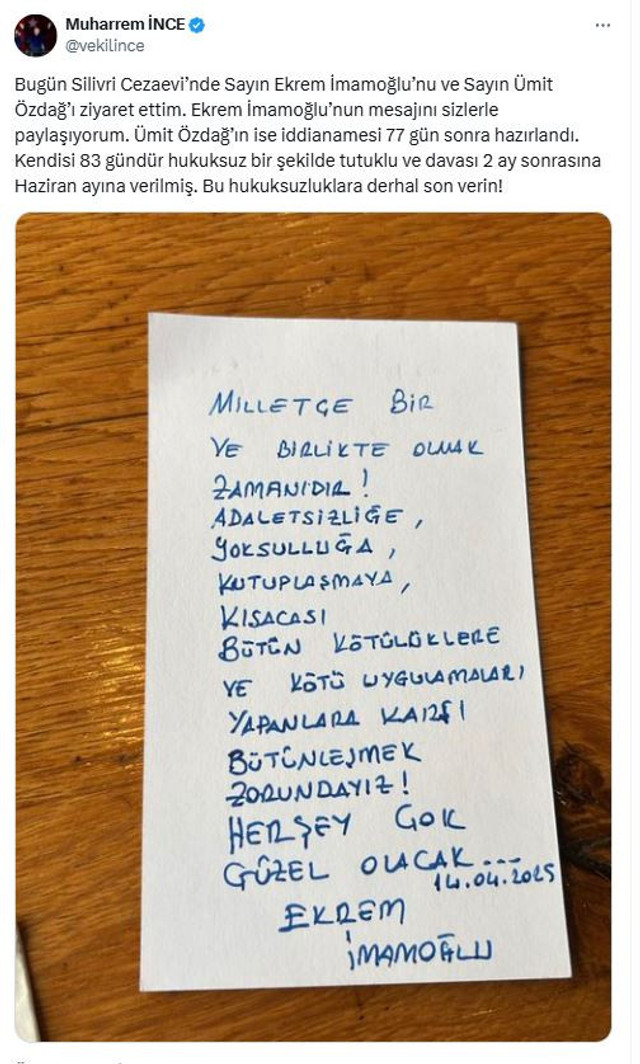 Muharrem İNCE
@vekilince
Bugün Silivri Cezaevi'nde Sayın Ekrem İmamoğlu'nu ve Sayın Ümit
Özdağ'ı ziyaret ettim. Ekrem İmamoğlu'nun mesajını sizlerle
paylaşıyorum. Ümit Özdağ'ın ise iddianamesi 77 gün sonra hazırlandı.
Kendisi 83 gündür hukuksuz bir şekilde tutuklu ve davası 2 ay sonrasına
Haziran ayına verilmiş. Bu hukuksuzluklara derhal son verin!
MİLLETÇE BİR
VE BİRLİKTE OLMAK
ZAMANIDIR!
ADALETSİZLİĞE,
YOKSULLUĞA,
KUTUPLAŞMAYA,
KISACASI
BÜTÜN KÖTÜLÜKLERE
VE KÖTÜ UYGULAMALARI
YAPANLARA KARŞI
BÜTÜNLEŞMEK
ZORUNDAYIZ!
HERŞEY ÇOK
GÜZEL OLACAK...
14.04.2025
EKREM
İMAMOĞLU